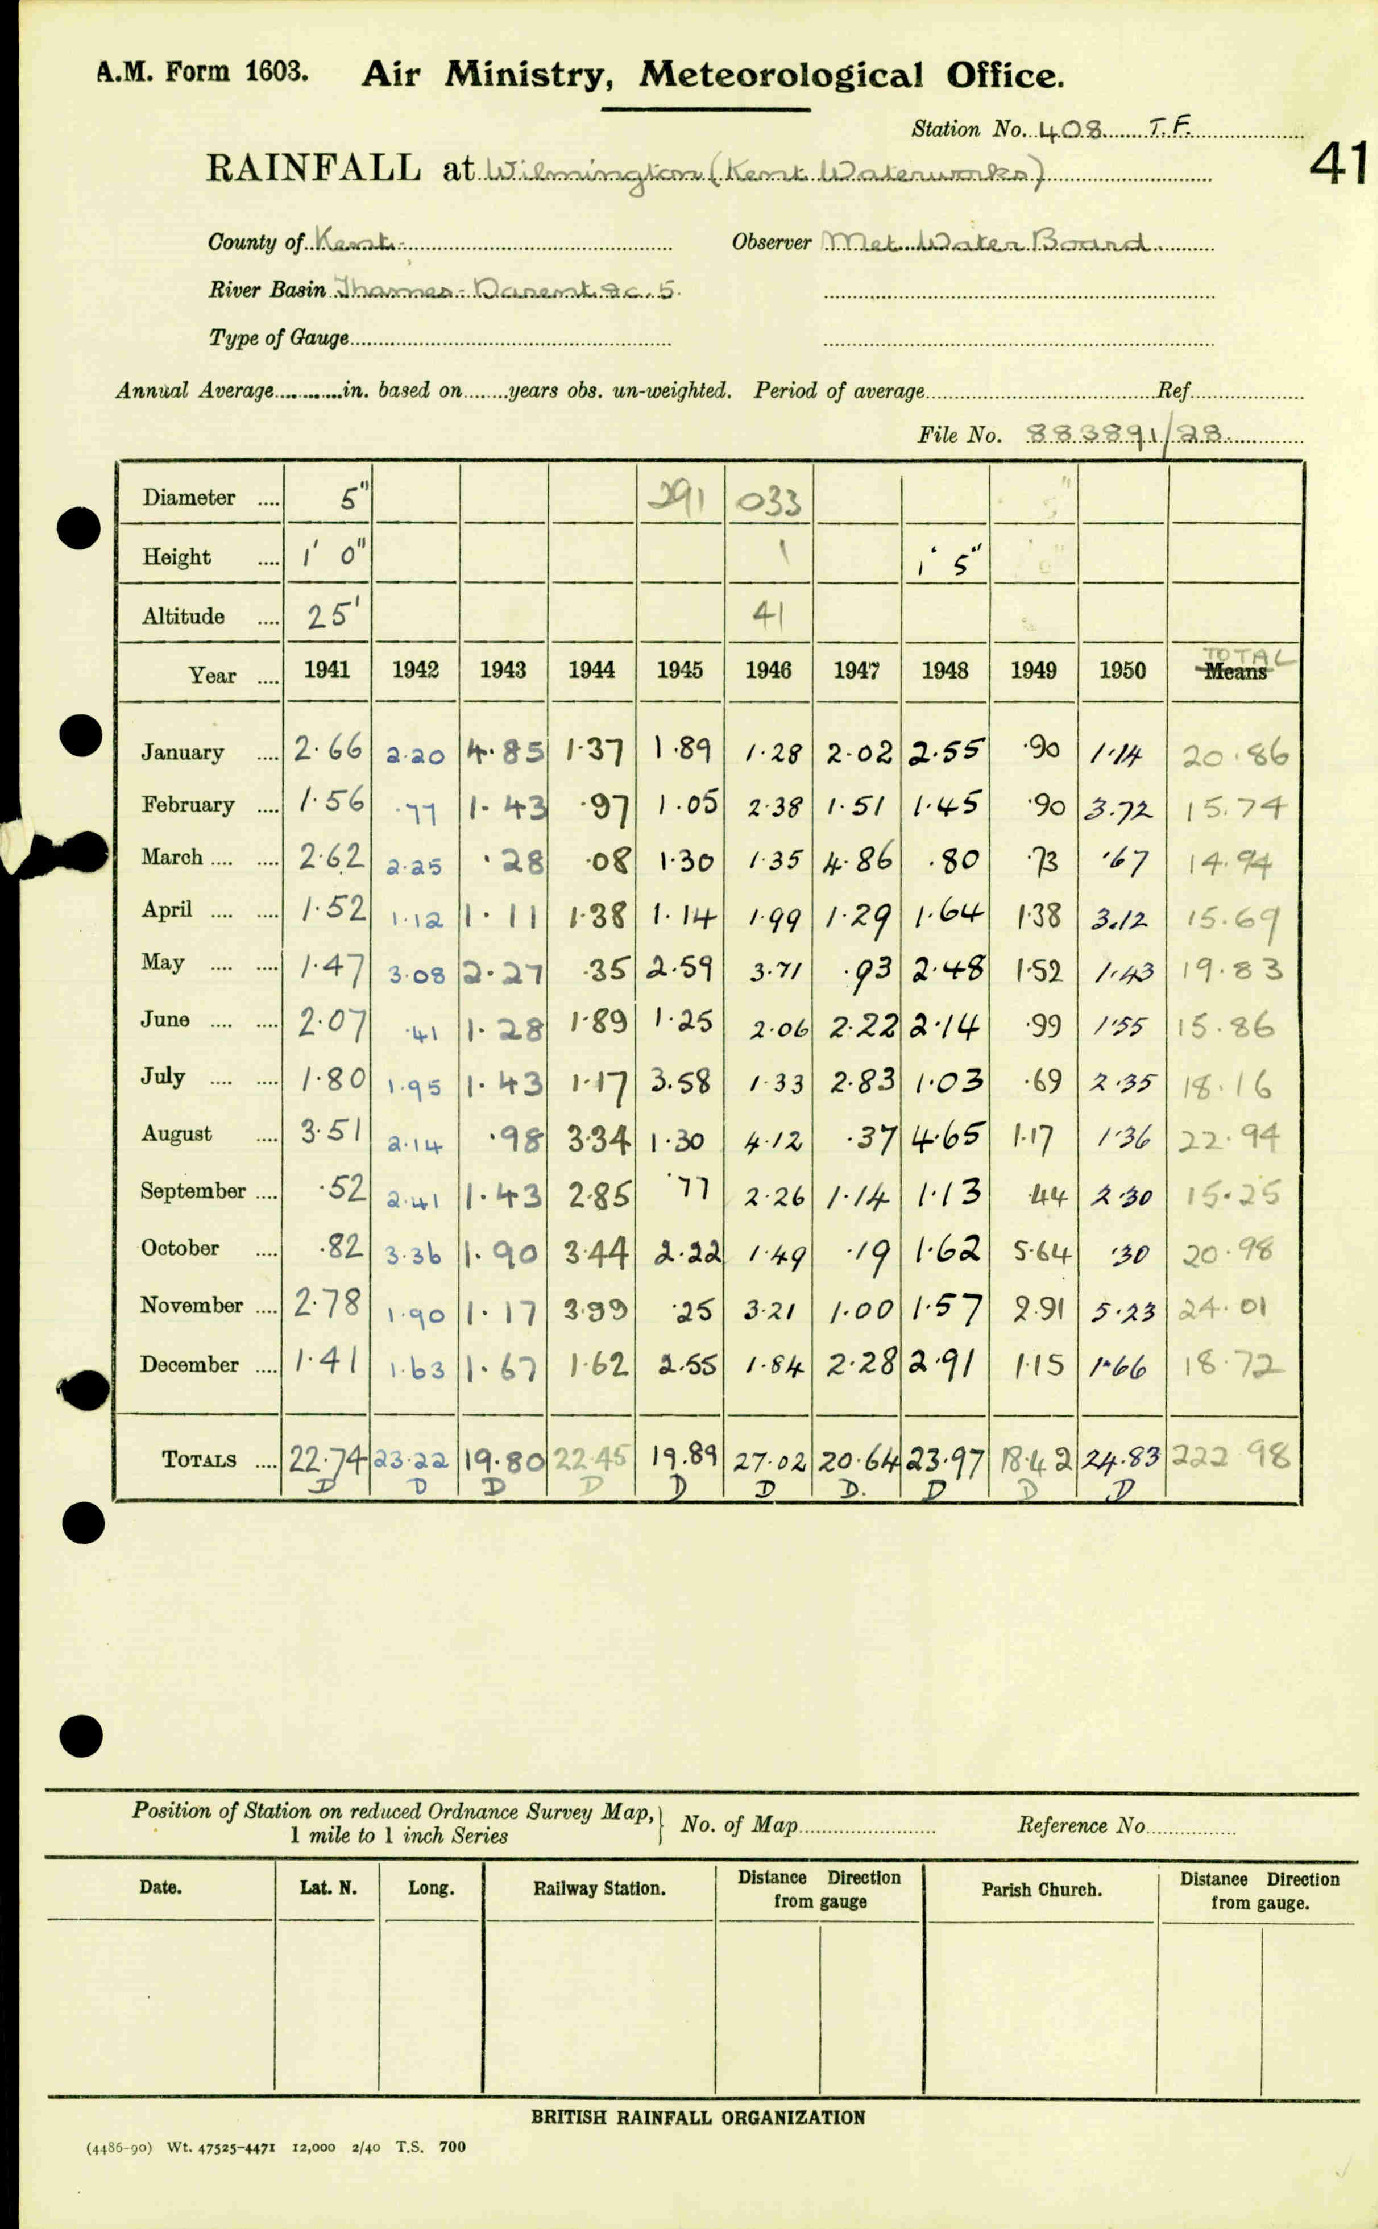 A.M. Form 1603. Air Ministry, Meteorological Office.
Station No. 408 T.F.
41
RAINFALL at Wilmington (Kent Waterworks)
County of Kent. Observer Met. Water Board
River Basin Thames-Darent &c. 5.
Type of Gauge
Annual Average in. based on years obs. un-weighted. Period of average Ref.
File No. 883891/28
Diameter .... 5" 291 033 5"
Height .... 1' 0" 1 1' 5"
Altitude .... 25' 41
Year .... 1941 1942 1943 1944 1945 1946 1947 1948 1949 1950 TOTAL Means
January .... 2.66 2.20 4.85 1.37 1.89 1.28 2.02 2.55 .90 1.14 20.86
February .... 1.56 .77 1.43 .97 1.05 2.38 1.51 1.45 .90 3.72 15.74
March .... .... 2.62 2.25 .28 .08 1.30 1.35 4.86 .80 .73 .67 14.94
April .... .... 1.52 1.12 1.11 1.38 1.14 1.99 1.29 1.64 1.38 3.12 15.69
May .... .... 1.47 3.08 2.27 .35 2.59 3.71 .93 2.48 1.52 1.43 19.83
June .... .... 2.07 .41 1.28 1.89 1.25 2.06 2.22 2.14 .99 1.55 15.86
July .... .... 1.80 1.95 1.43 1.17 3.58 1.33 2.83 1.03 .69 2.35 18.16
August .... 3.51 2.14 .98 3.34 1.30 4.12 .37 4.65 1.17 1.36 22.94
September .... .52 2.41 1.43 2.85 .77 2.26 1.14 1.13 .44 2.30 15.25
October .... .82 3.36 1.90 3.44 2.22 1.49 .19 1.62 5.64 .30 20.98
November .... 2.78 1.90 1.17 3.99 .25 3.21 1.00 1.57 2.91 5.23 24.01
December .... 1.41 1.63 1.67 1.62 2.55 1.84 2.28 2.91 1.15 1.66 18.72
TOTALS .... 22.74 23.22 19.80 22.45 19.89 27.02 20.64 23.97 18.42 24.83 222.98
D D D D D D D. D D D
Position of Station on reduced Ordnance Survey Map, 1 mile to 1 inch Series } No. of Map Reference No.
Date. Lat. N. Long. Railway Station. Distance Direction from gauge Parish Church. Distance Direction from gauge.
BRITISH RAINFALL ORGANIZATION
(4486-90) Wt. 47525-4471 12,000 2/40 T.S. 700